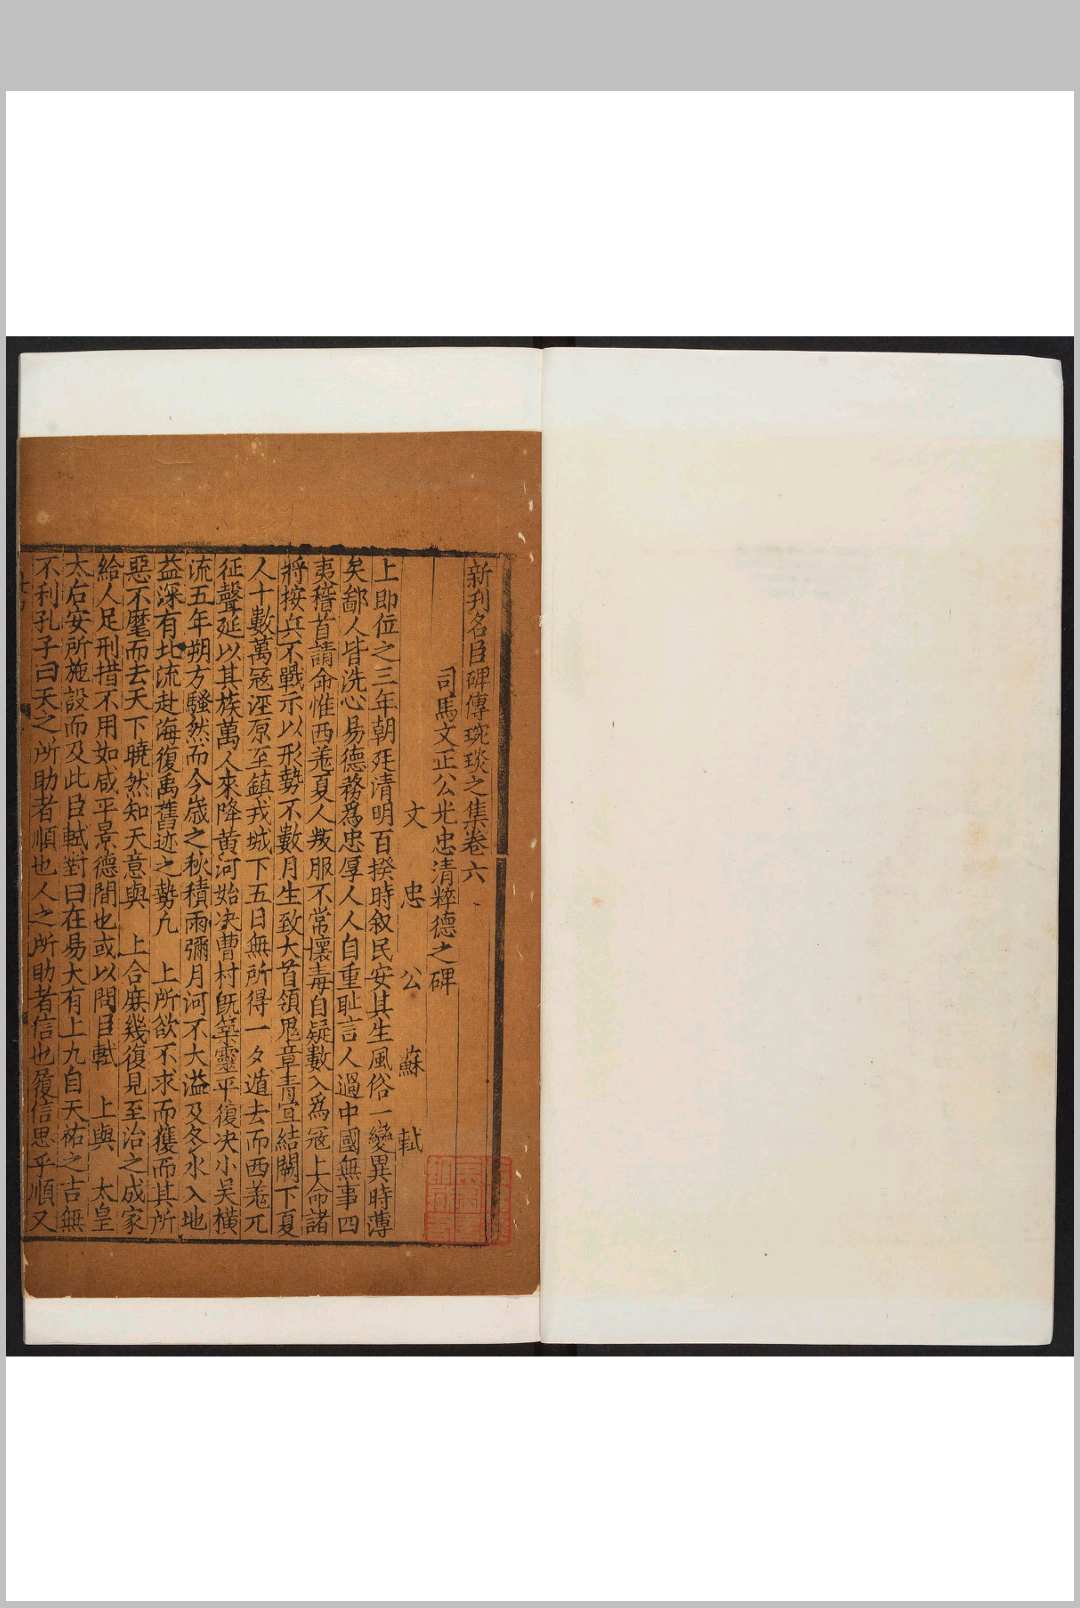 新刊名臣碑傳琬琰之集卷六
司馬文正公光忠清粹德之碑
文忠公蘇軾
上即位之三年朝廷清明百揆時叙民安其生風俗一變異時薄
矣鄙人皆洗心易德務爲忠厚人人自重耻言人過中國無事四
夷稽首請命惟西羗夏人叛服不常懷毒自疑數入爲冦上命諸
將按兵不戰示以形勢不數月生致大首領鬼章青宜結闕下夏
人十數萬冦涇原至鎮戎城下五日無所得一夕遁去而西羗兀
征聲延以其族萬人來降黄河始决曹村旣築靈平復决小吴橫
流五年朔方騷然而今嵗之秋積雨彌月河不大溢及冬水入地
益深有北流赴海復禹舊迹之勢凢上所欲不求而獲而其所
惡不麾而去天下曉然知天意與上合庶幾復見至治之成家
給人足刑措不用如咸平景德間也或以問臣軾上與太皇
太后安所施設而及此臣軾對曰在易大有上九自天祐之吉無
不利孔子曰天之所助者順也人之所助者信也履信思乎順又